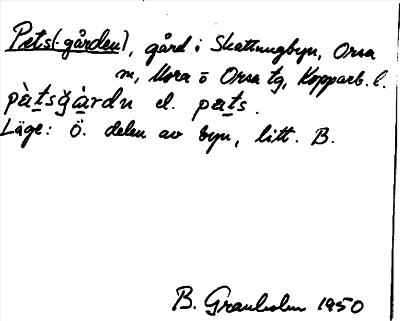 Pets(-gården), gård i Skattungbyn, Orsa
sn, Mora o Orsa tg, Kopparb. l.
pàtsgàrdn el. pats.
Läge: Ö. delen av byn, litt. B.
B. Granholm 1950